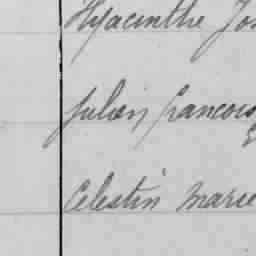 Hyacinthe Jos
Julien francois
Celestin marie